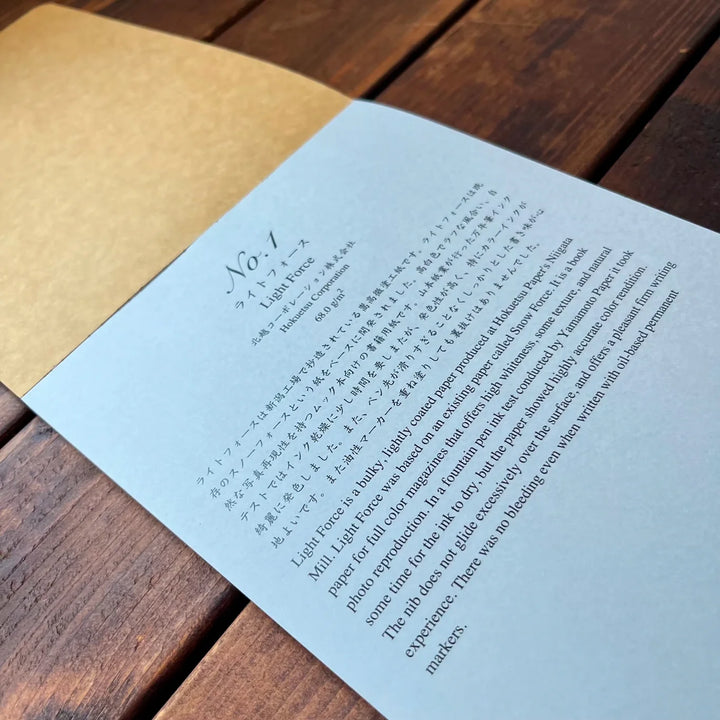 No.1
ライトフォース
Light Force
北越コーポレーション株式会社
Hokuetsu Corporation
68.0 g/m²
ライトフォースは新潟工場で抄造されている嵩高微塗工紙です。ライトフォースは既
存のスノーフォースという紙をベースに開発されました。高白色でラフな風合い、自
然な写真再現性を持つムック本向けの書籍用紙です。山本紙業が行った万年筆インク
テストではインク乾燥に少し時間を要しましたが、発色性が高く、特にカラーインクが
綺麗に発色しました。また、ペン先が滑りすぎることなくしっかりとした書き味が心
地よいです。また油性マーカーを重ね塗りしても裏抜けはありませんでした。
Light Force is a bulky, lightly coated paper produced at Hokuetsu Paper's Niigata
Mill. Light Force was based on an existing paper called Snow Force. It is a book
paper for full color magazines that offers high whiteness, some texture, and natural
photo reproduction. In a fountain pen ink test conducted by Yamamoto Paper it took
some time for the ink to dry, but the paper showed highly accurate color rendition.
The nib does not glide excessively over the surface, and offers a pleasant firm writing
experience. There was no bleeding even when written with oil-based permanent
markers.